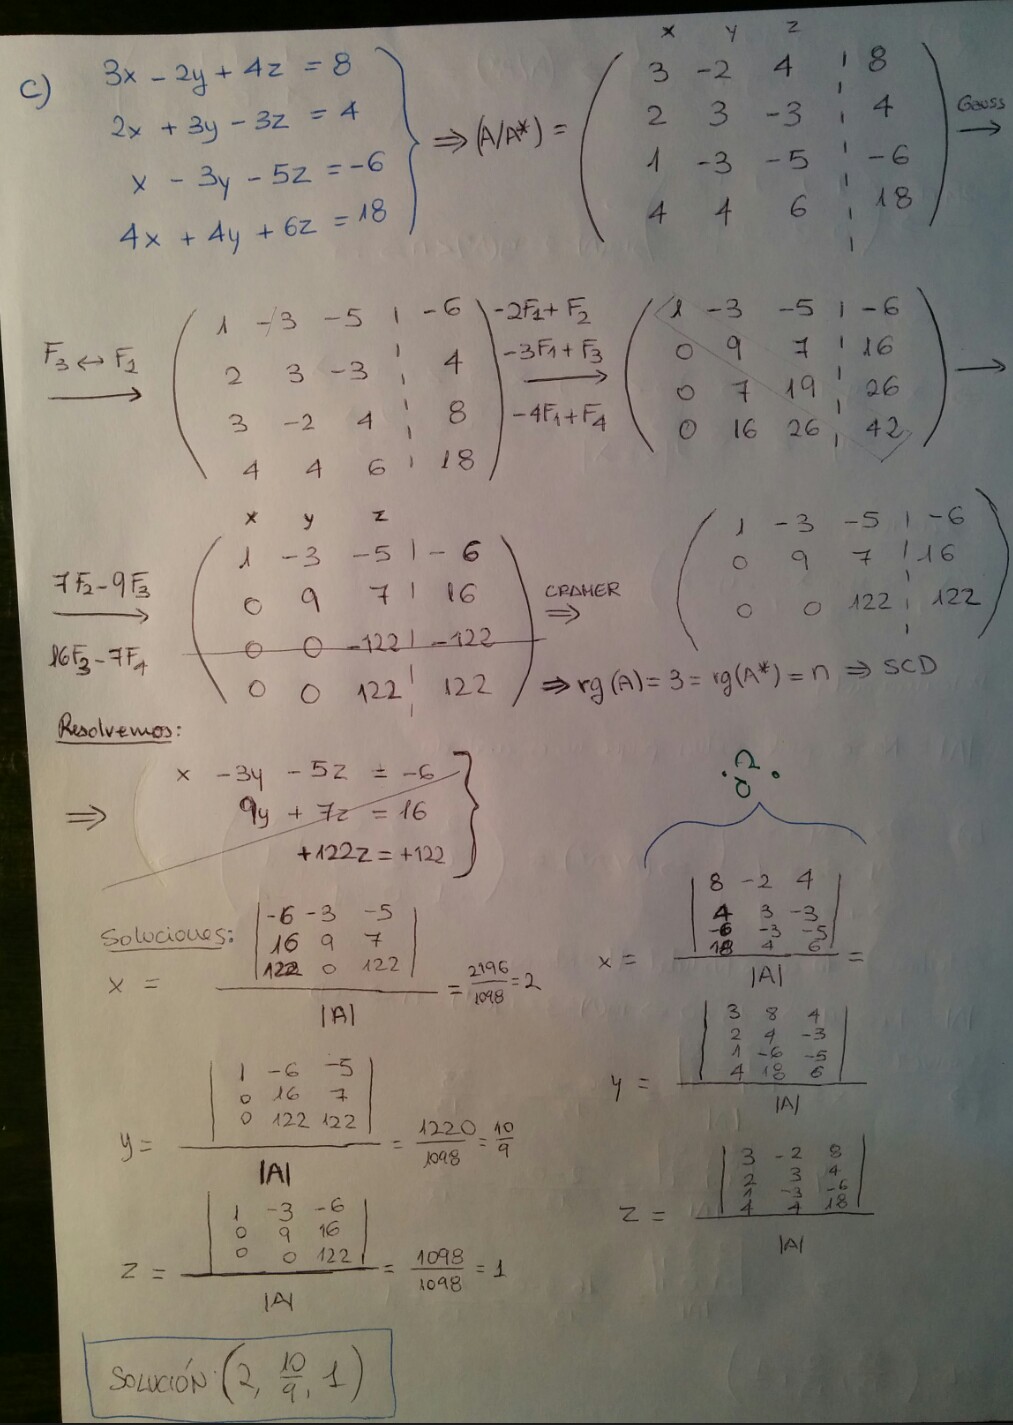 c) 3x - 2y + 4z = 8
2x + 3y - 3z = 4
x - 3y - 5z = -6
4x + 4y + 6z = 18
⇒ (A/A*) =
x y z
3 -2 4 | 8
2 3 -3 | 4
1 -3 -5 | -6
4 4 6 | 18
Gauss →
F3 ↔ F1 →
1 -3 -5 | -6
2 3 -3 | 4
3 -2 4 | 8
4 4 6 | 18
-2F1 + F2
-3F1 + F3
→
-4F1 + F4
1 -3 -5 | -6
0 9 7 | 16
0 7 19 | 26
0 16 26 | 42
→
7F2 - 9F3
→
16F3 - 7F4
x y z
1 -3 -5 | -6
0 9 7 | 16
0 0 -122 | -122
0 0 122 | 122
CRAMER
⇒
1 -3 -5 | -6
0 9 7 | 16
0 0 122 | 122
⇒ rg(A) = 3 = rg(A*) = n ⇒ SCD
Resolvemos:
⇒
x - 3y - 5z = -6
9y + 7z = 16
+122z = +122
Soluciones:
x = |-6 -3 -5|
|16 9 7|
|122 0 122|
|A|
= 2196/1098 = 2
y = |1 -6 -5|
|0 16 7|
|0 122 122|
|A|
= 1220/1098 = 10/9
z = |1 -3 -6|
|0 9 16|
|0 0 122|
|A|
= 1098/1098 = 1
SOLUCIÓN: (2, 10/9, 1)
¿?
x = |8 -2 4|
|4 3 -3|
|-6 -3 -5|
|18 4 6|
|A|
=
y = |3 8 4|
|2 4 -3|
|1 -6 -5|
|4 18 6|
|A|
z = |3 -2 8|
|2 3 4|
|1 -3 -6|
|4 4 18|
|A|